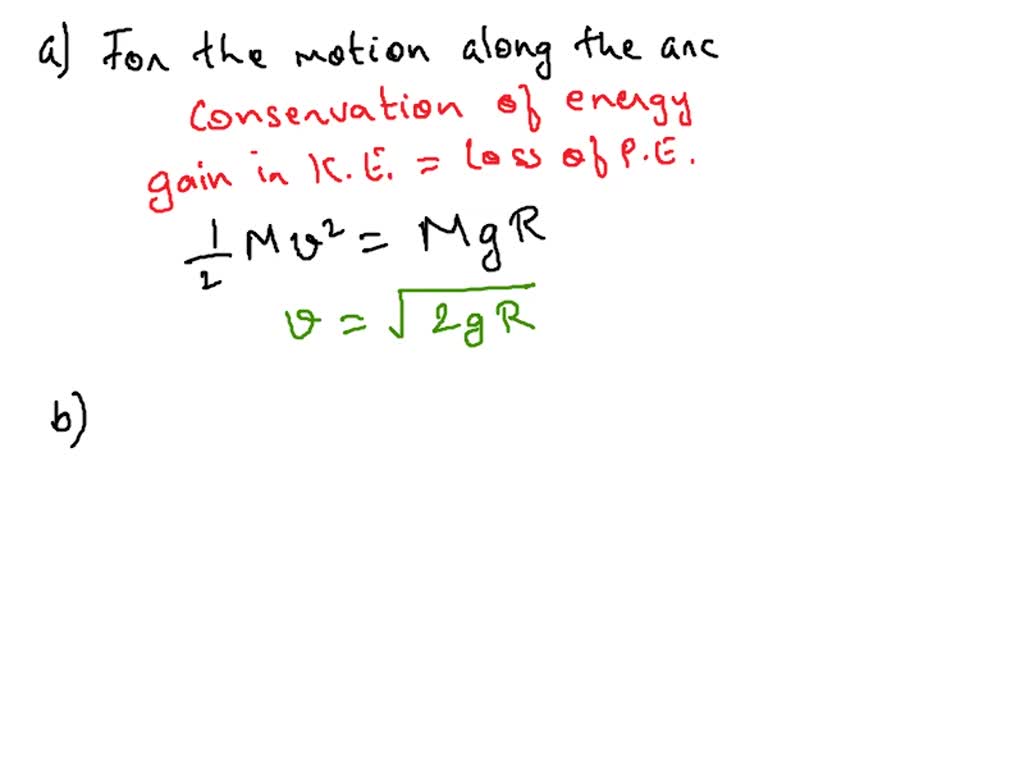 a) For the motion along the arc
Conservation of energy
gain in K.E. = loss of P.E.
1/2 Mv² = MgR
v = √2gR
b)